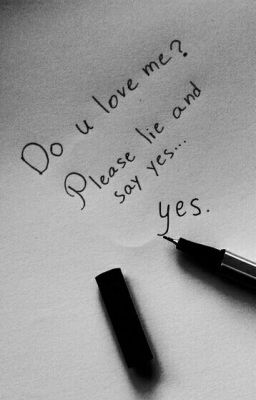 Do u love me?
Please lie and
say yes...
yes.